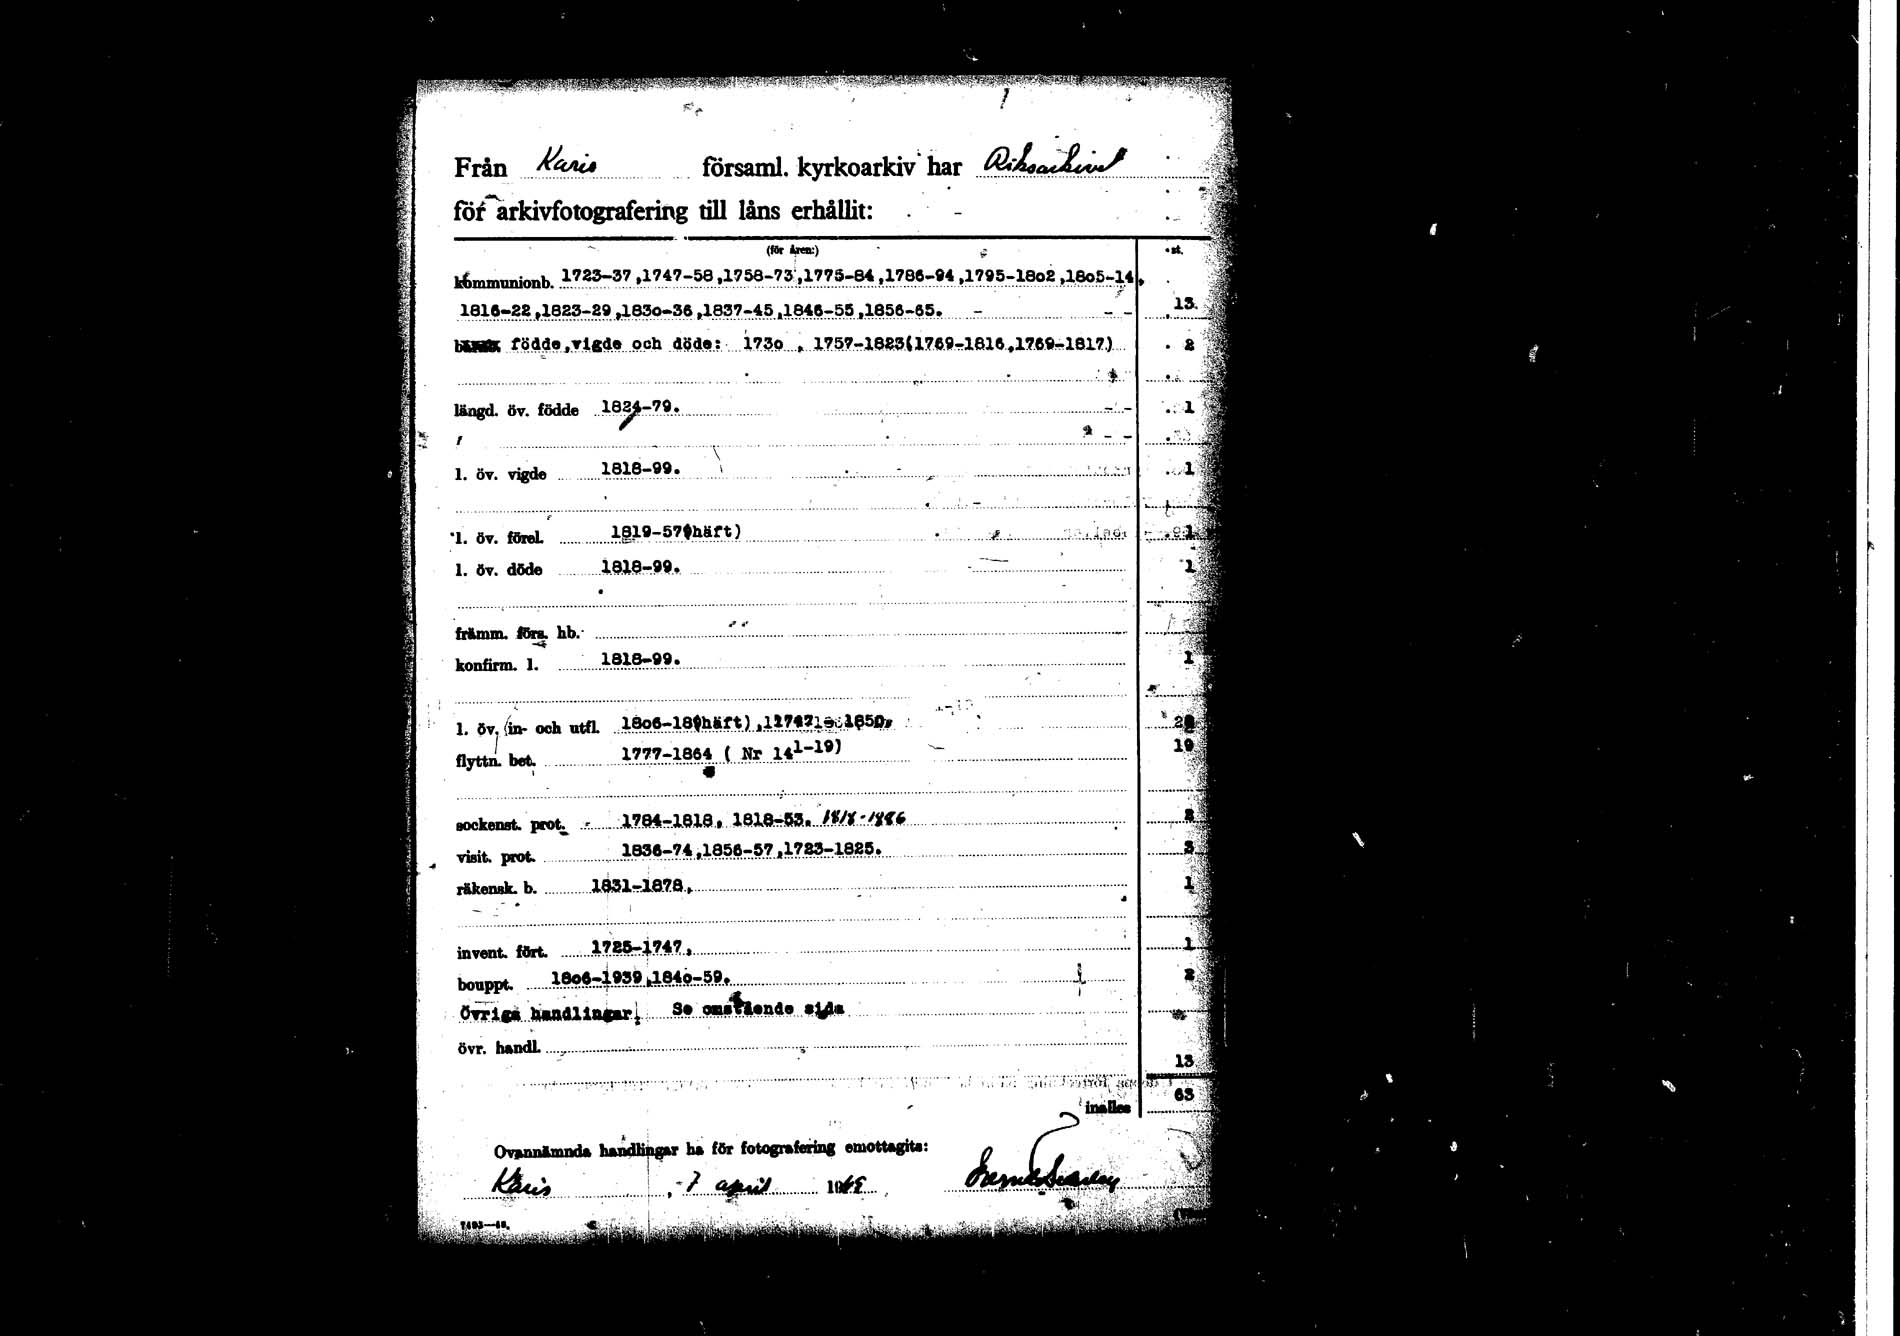 Från Karis församl. kyrkoarkiv har Riksarkivet
för arkivfotografering till låns erhållit:
(för åren:) st.
kommunionb. 1723-37,1747-58,1758-73,1775-84,1786-94,1795-18o2,18o5-14,
1816-22,1823-29,183o-36,1837-45,1846-55,1856-65. 13
födde,vigde och döde: 173o , 1757-1823(1769-1816,1769-1817) 2
längd. öv. födde 1824-79. 1
l. öv. vigde 1818-99. 1
l. öv. förel. 1819-57(häft) 1
l. öv. döde 1818-99. 1
främm. förs. hb.
konfirm. l. 1818-99. 1
l. öv. in- och utfl. 18o6-18(häft), 2
flyttn. bet. 1777-1864 ( Nr 14 1-19) 19
sockenst. prot. 1784-1818, 1818-53. 1818-1886
visit. prot. 1836-74,1856-57,1723-1825. 3
räkensk. b. 1831-1878, 1
invent. fört. 1725-1747, 1
bouppt. 18o6-1939,184o-59. 2
Övriga handlingar: Se omstående sida
övr. handl.
13
inalles 63
Ovannämnda handlingar ha för fotografering emottagits:
Karis, 7 april 19